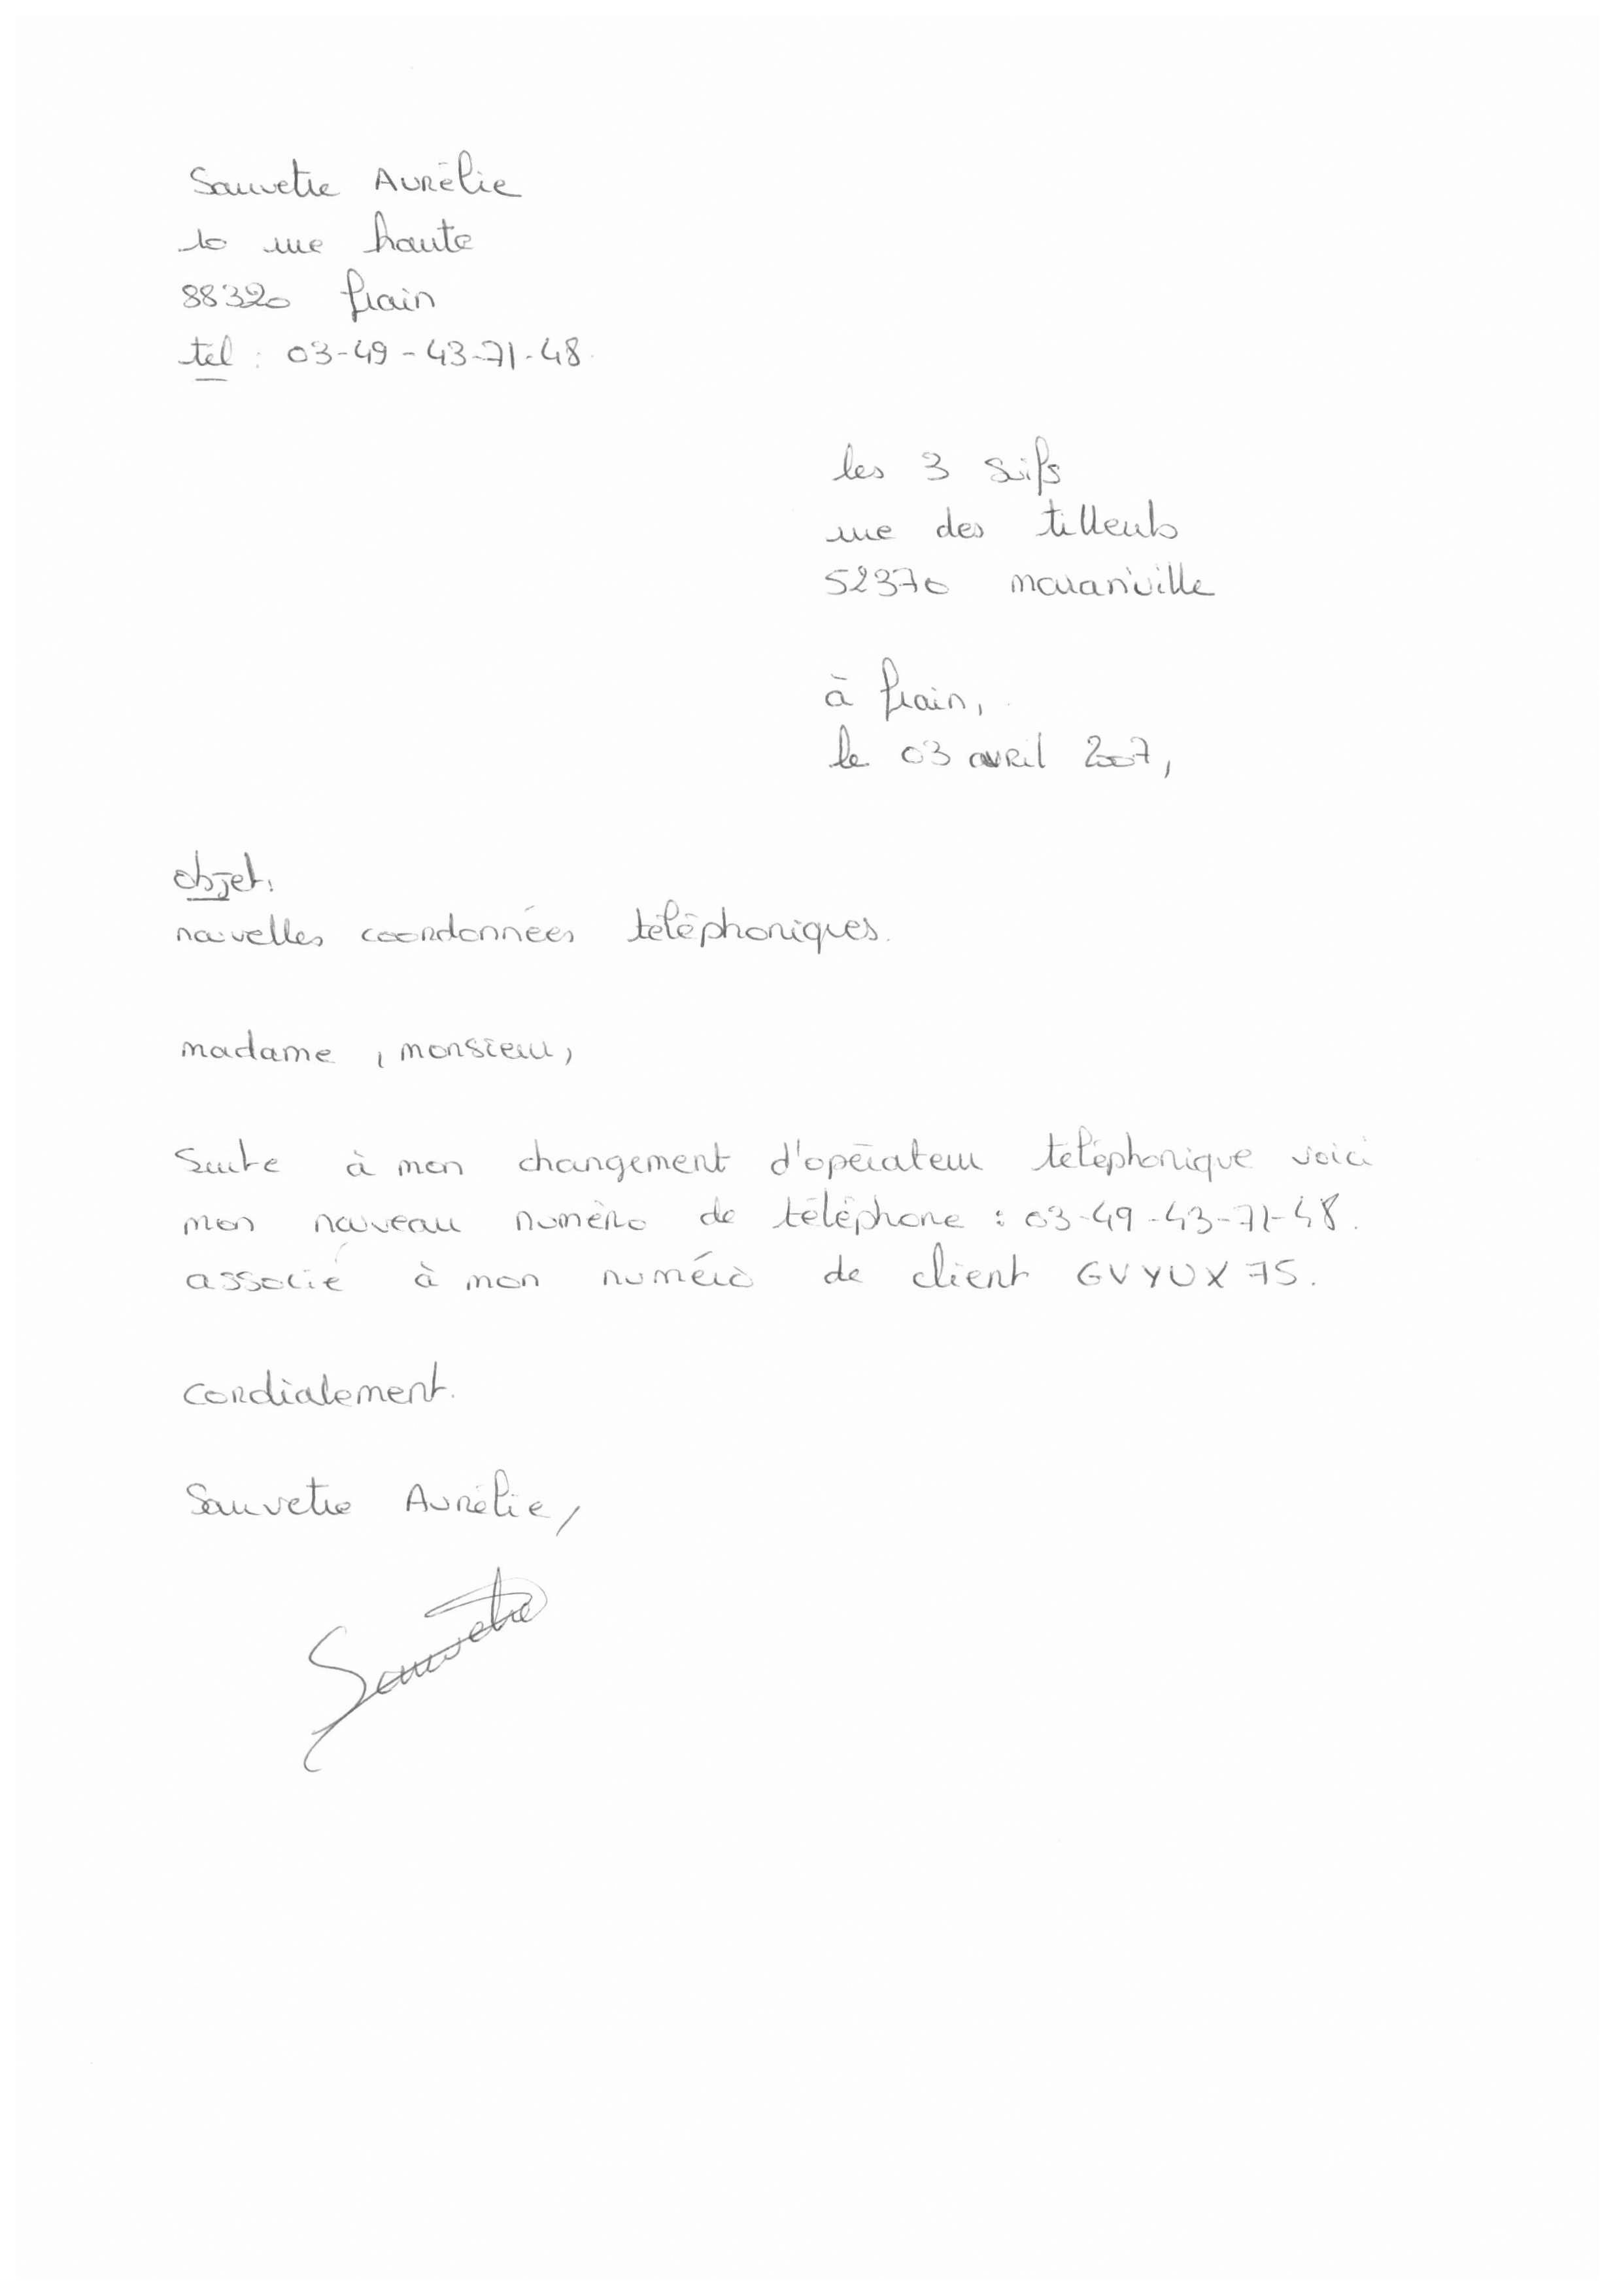 Sauvetre Aurélie
10 rue haute
88320 frain
tél : 03-49-43-71-48.
les 3 suifs
rue des tilleuls
52370 maranville
à frain,
le 03 avril 2007,
objet:
nouvelles coordonnées téléphoniques.
madame, monsieur,
Suite à mon changement d'opérateur téléphonique voici
mon nouveau numéro de téléphone : 03-49-43-71-48.
associé à mon numéro de client GVYUX75.
cordialement.
Sauvetre Aurélie,
Sauvetre